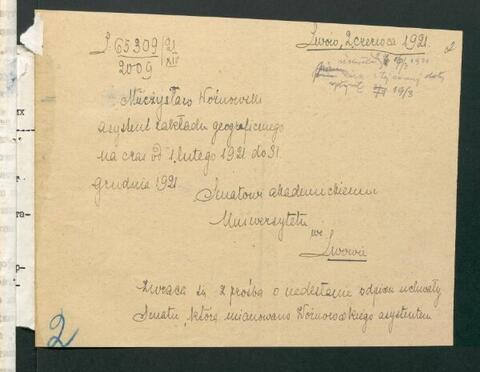 L. 65309/21
2009/XII
Lwów, 2 czerwca 1921.
19/3
Mieczysław Woźnowski
asystent zakładu geograficznego
na czas od 1 lutego 1921 do 31.
grudnia 1921.
Senatowi akademickiemu
Uniwersytetu
we
Lwowie
Zwraca się z prośbą o nadesłanie odpisu uchwały
Senatu, którą mianowano Woźnorowskiego asystentem
2